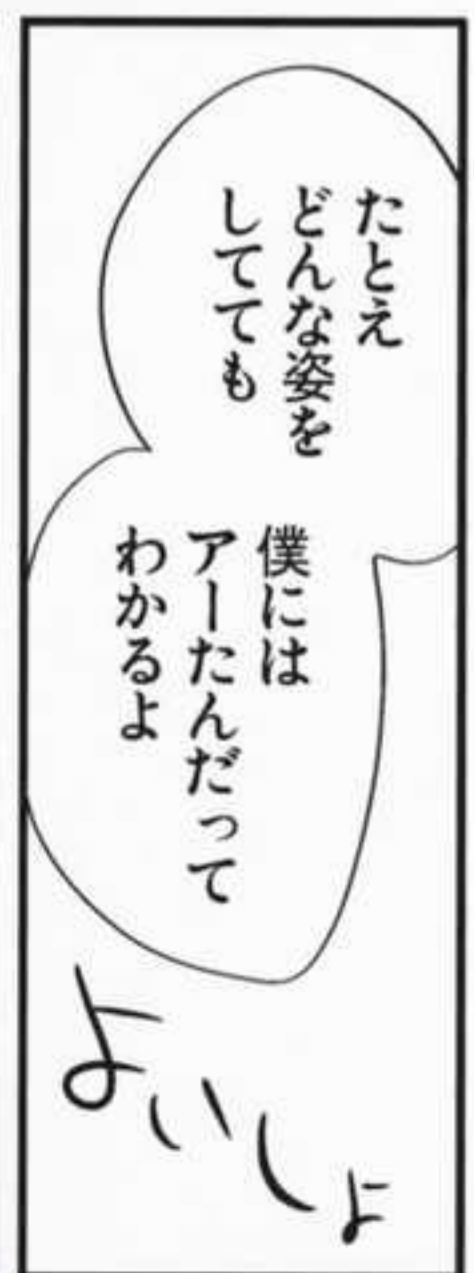 たとえ
どんな姿を
してても
僕には
アーたんだって
わかるよ
よいしょ